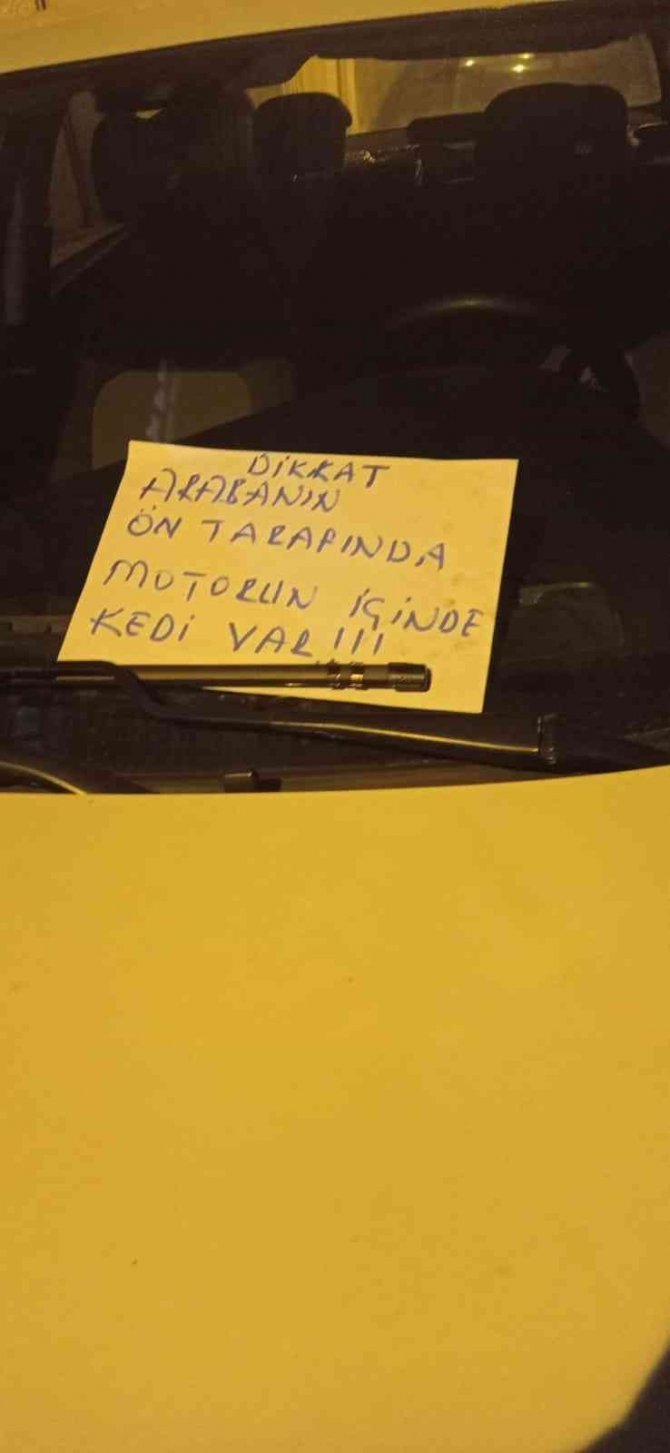 DİKKAT
ARABANIN
ÖN TARAFINDA
MOTORUN İÇİNDE
KEDİ VAR !!!